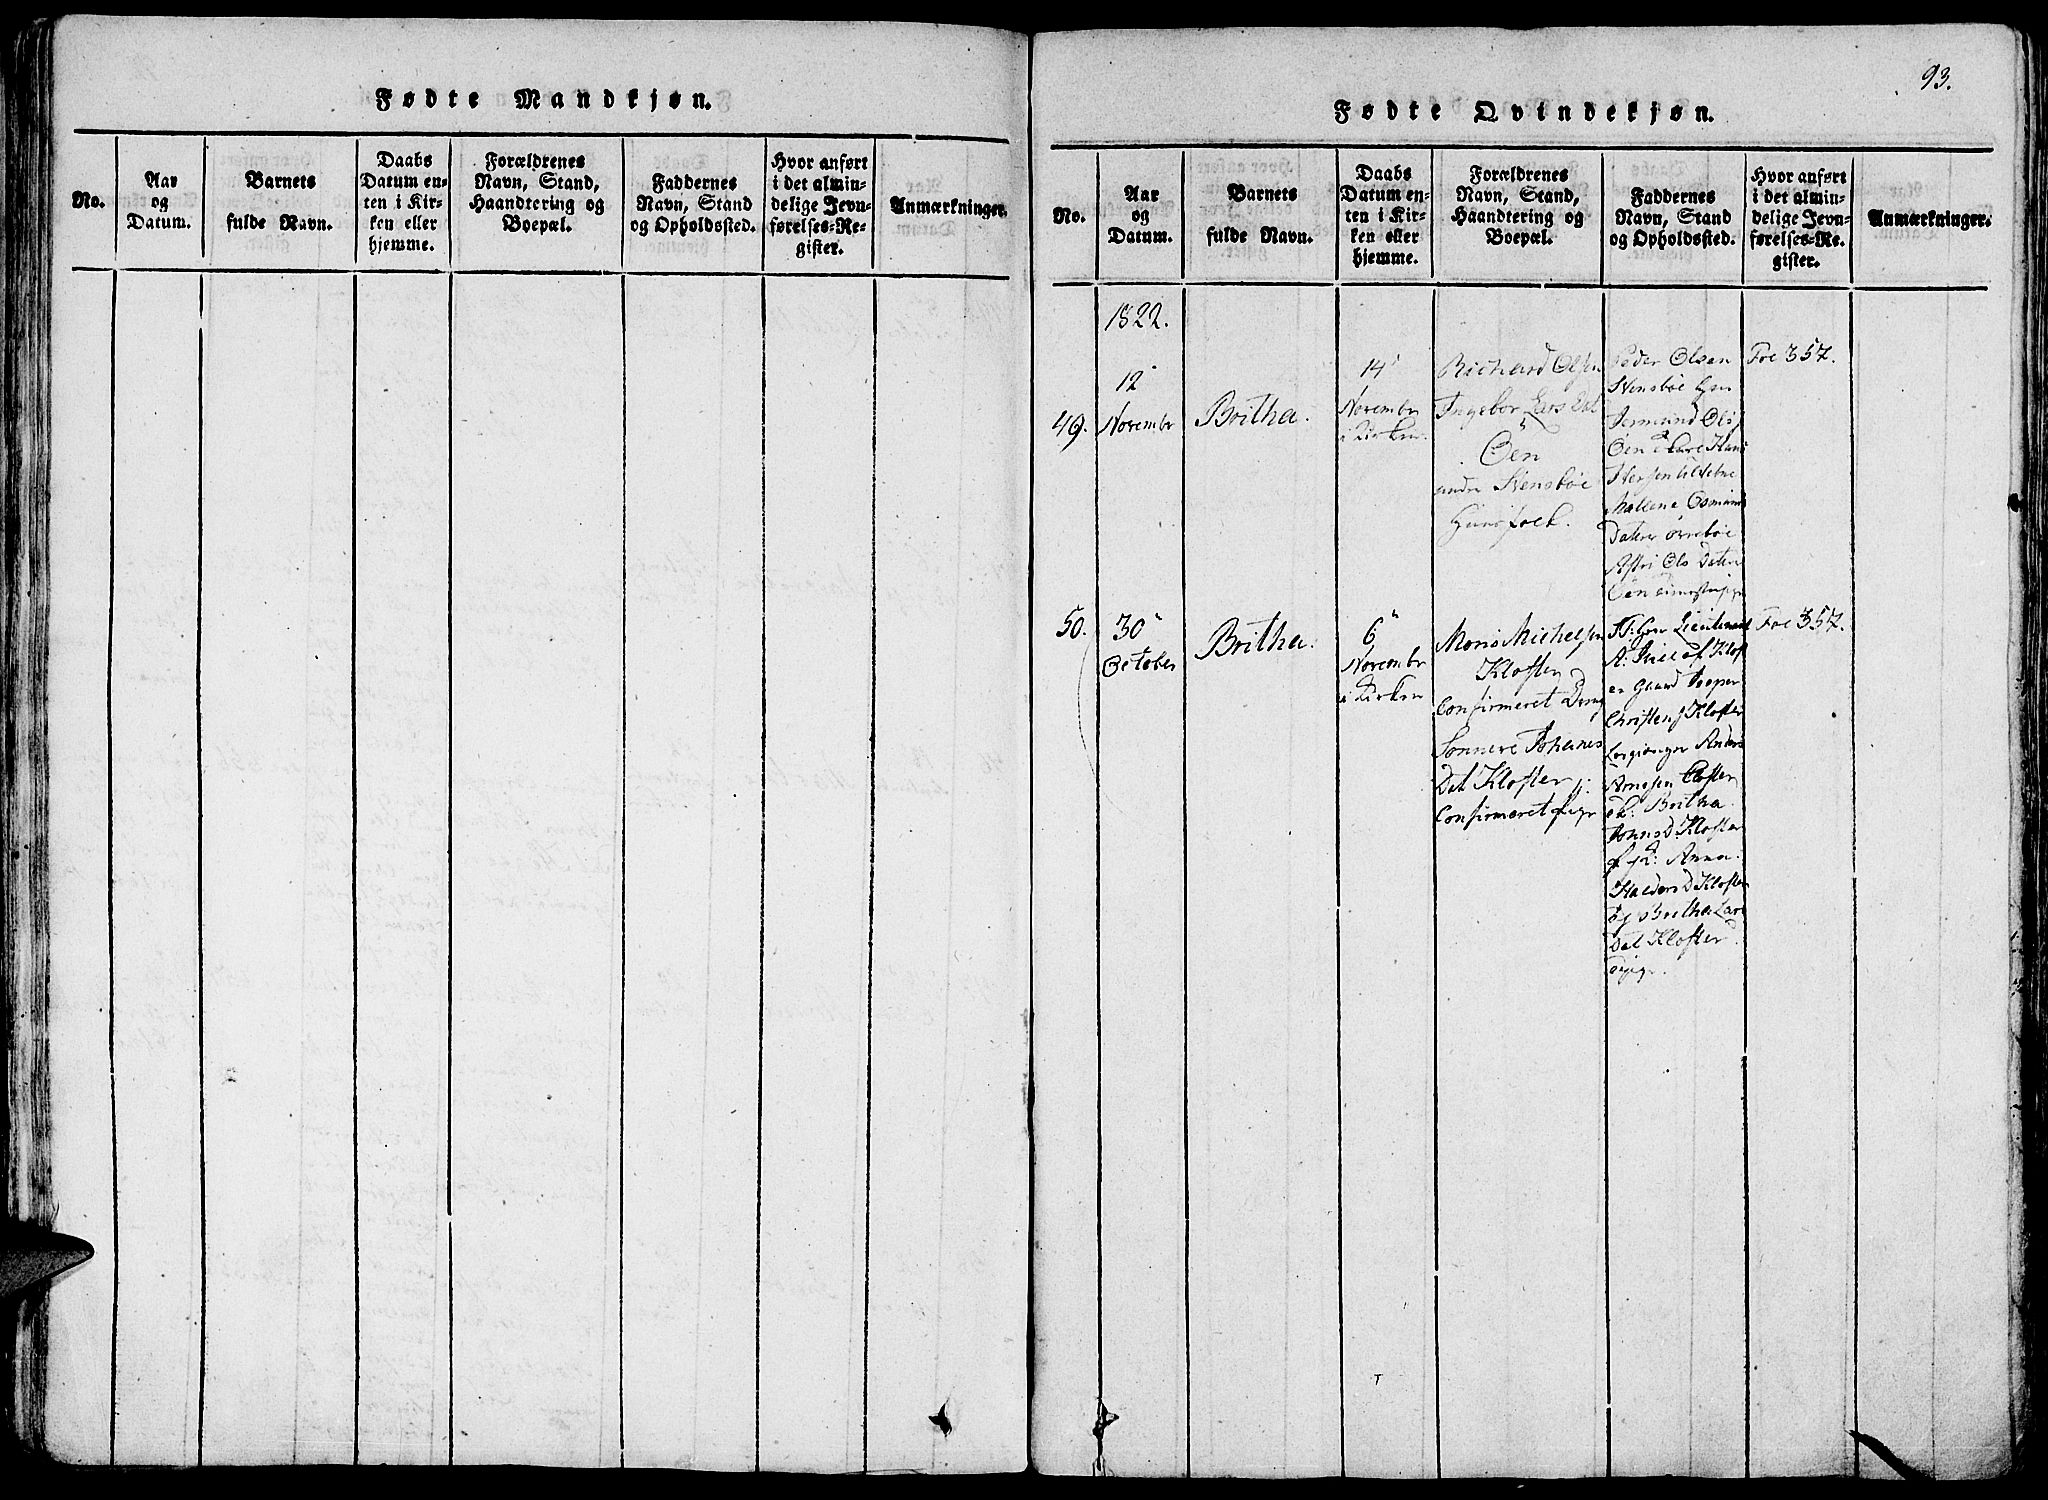 Fødte Mandkjøn.
No.
Aar
og
Datum.
Barnets
fulde Navn.
Daabs
Datum en-
ten i Kir-
ken eller
hjemme.
Forældrenes
Navn, Stand,
Haandtering og
Boepæl.
Faddernes
Navn, Stand
og Opholdssted.
Hvor anført
i det almin-
delige Jevn-
førelses-Re-
gister.
Anmærkninger.
93.
Fødte Qvindekjøn.
No.
Aar
og
Datum.
Barnets
fulde Navn.
Daabs
Datum en-
ten i Kir-
ken eller
hjemme.
Forældrenes
Navn, Stand,
Haandtering og
Boepæl.
Faddernes
Navn, Stand
og Opholdssted.
Hvor anført
i det almin-
delige Jevn-
førelses-Re-
gister.
Anmærkninger.
1822.
49.
12
Novembr
Britha.
14
Novembr
i Kirken.
Richard Olsen
Ingebor Lars Dat
Øen
under Stensbøe
Huusfolk.
Peder Olsen
Stensbøe
Olss
Øen
Osmunds
Dater
Ols Dater
Øen
Fol 357.
50.
30
October
Britha.
6
Novembr
i Kirken
Mons Michelsen
Kloster
Confirmeret Dreng
Sønnere Johanes
Dat Kloster
Confirmeret Pige
Lieutenant
af Klost
er Gaard Jesper
Christens Kloster
Anders
Arnesen Closter
Britha
Johns D Kloster
Anna
Halders D Kloster
og Britha Lars
Dat Kloster
Fol 357.